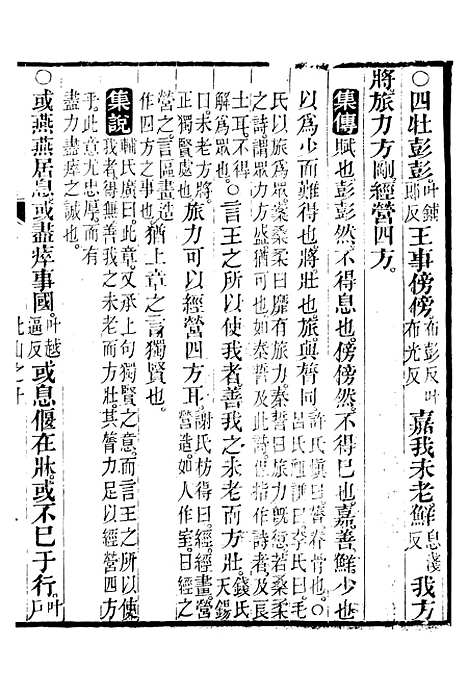 ○四牡彭彭叶鋪郎反王事傍傍布彭反叶布光反嘉我未老鮮息淺反我方
將旅力方剛經營四方
集傳賦也彭彭然不得息也傍傍然不得已也嘉善鮮少也
以爲少而難得也將壯也旅與膂同許氏慎曰膂脊骨也錢氏
氏以旅爲衆桑柔曰靡有旅力秦誓曰旅力旣愆若桑柔
之詩謂衆力方盛猶可也如秦誓及此詩作詩者及良
士耳不得解爲衆也言王之所以使我者善我之未老而方壯天錫
曰未老方將正獨賢處也旅力可以經營四方耳謝氏枋得曰經畫營
營造如人作室曰經之營之言區畫造作四方之事也猶上章之言獨賢也
集說輔氏廣曰此章又承上句獨賢之意而言王之所以使
我者得無善我之未老而方壯其膂力足以經營四方
乎此意尤忠厚有
盡力盡瘁之誠也
○或燕燕居息或盡瘁事國叶越逼反或息偃在牀或不已于行叶戶